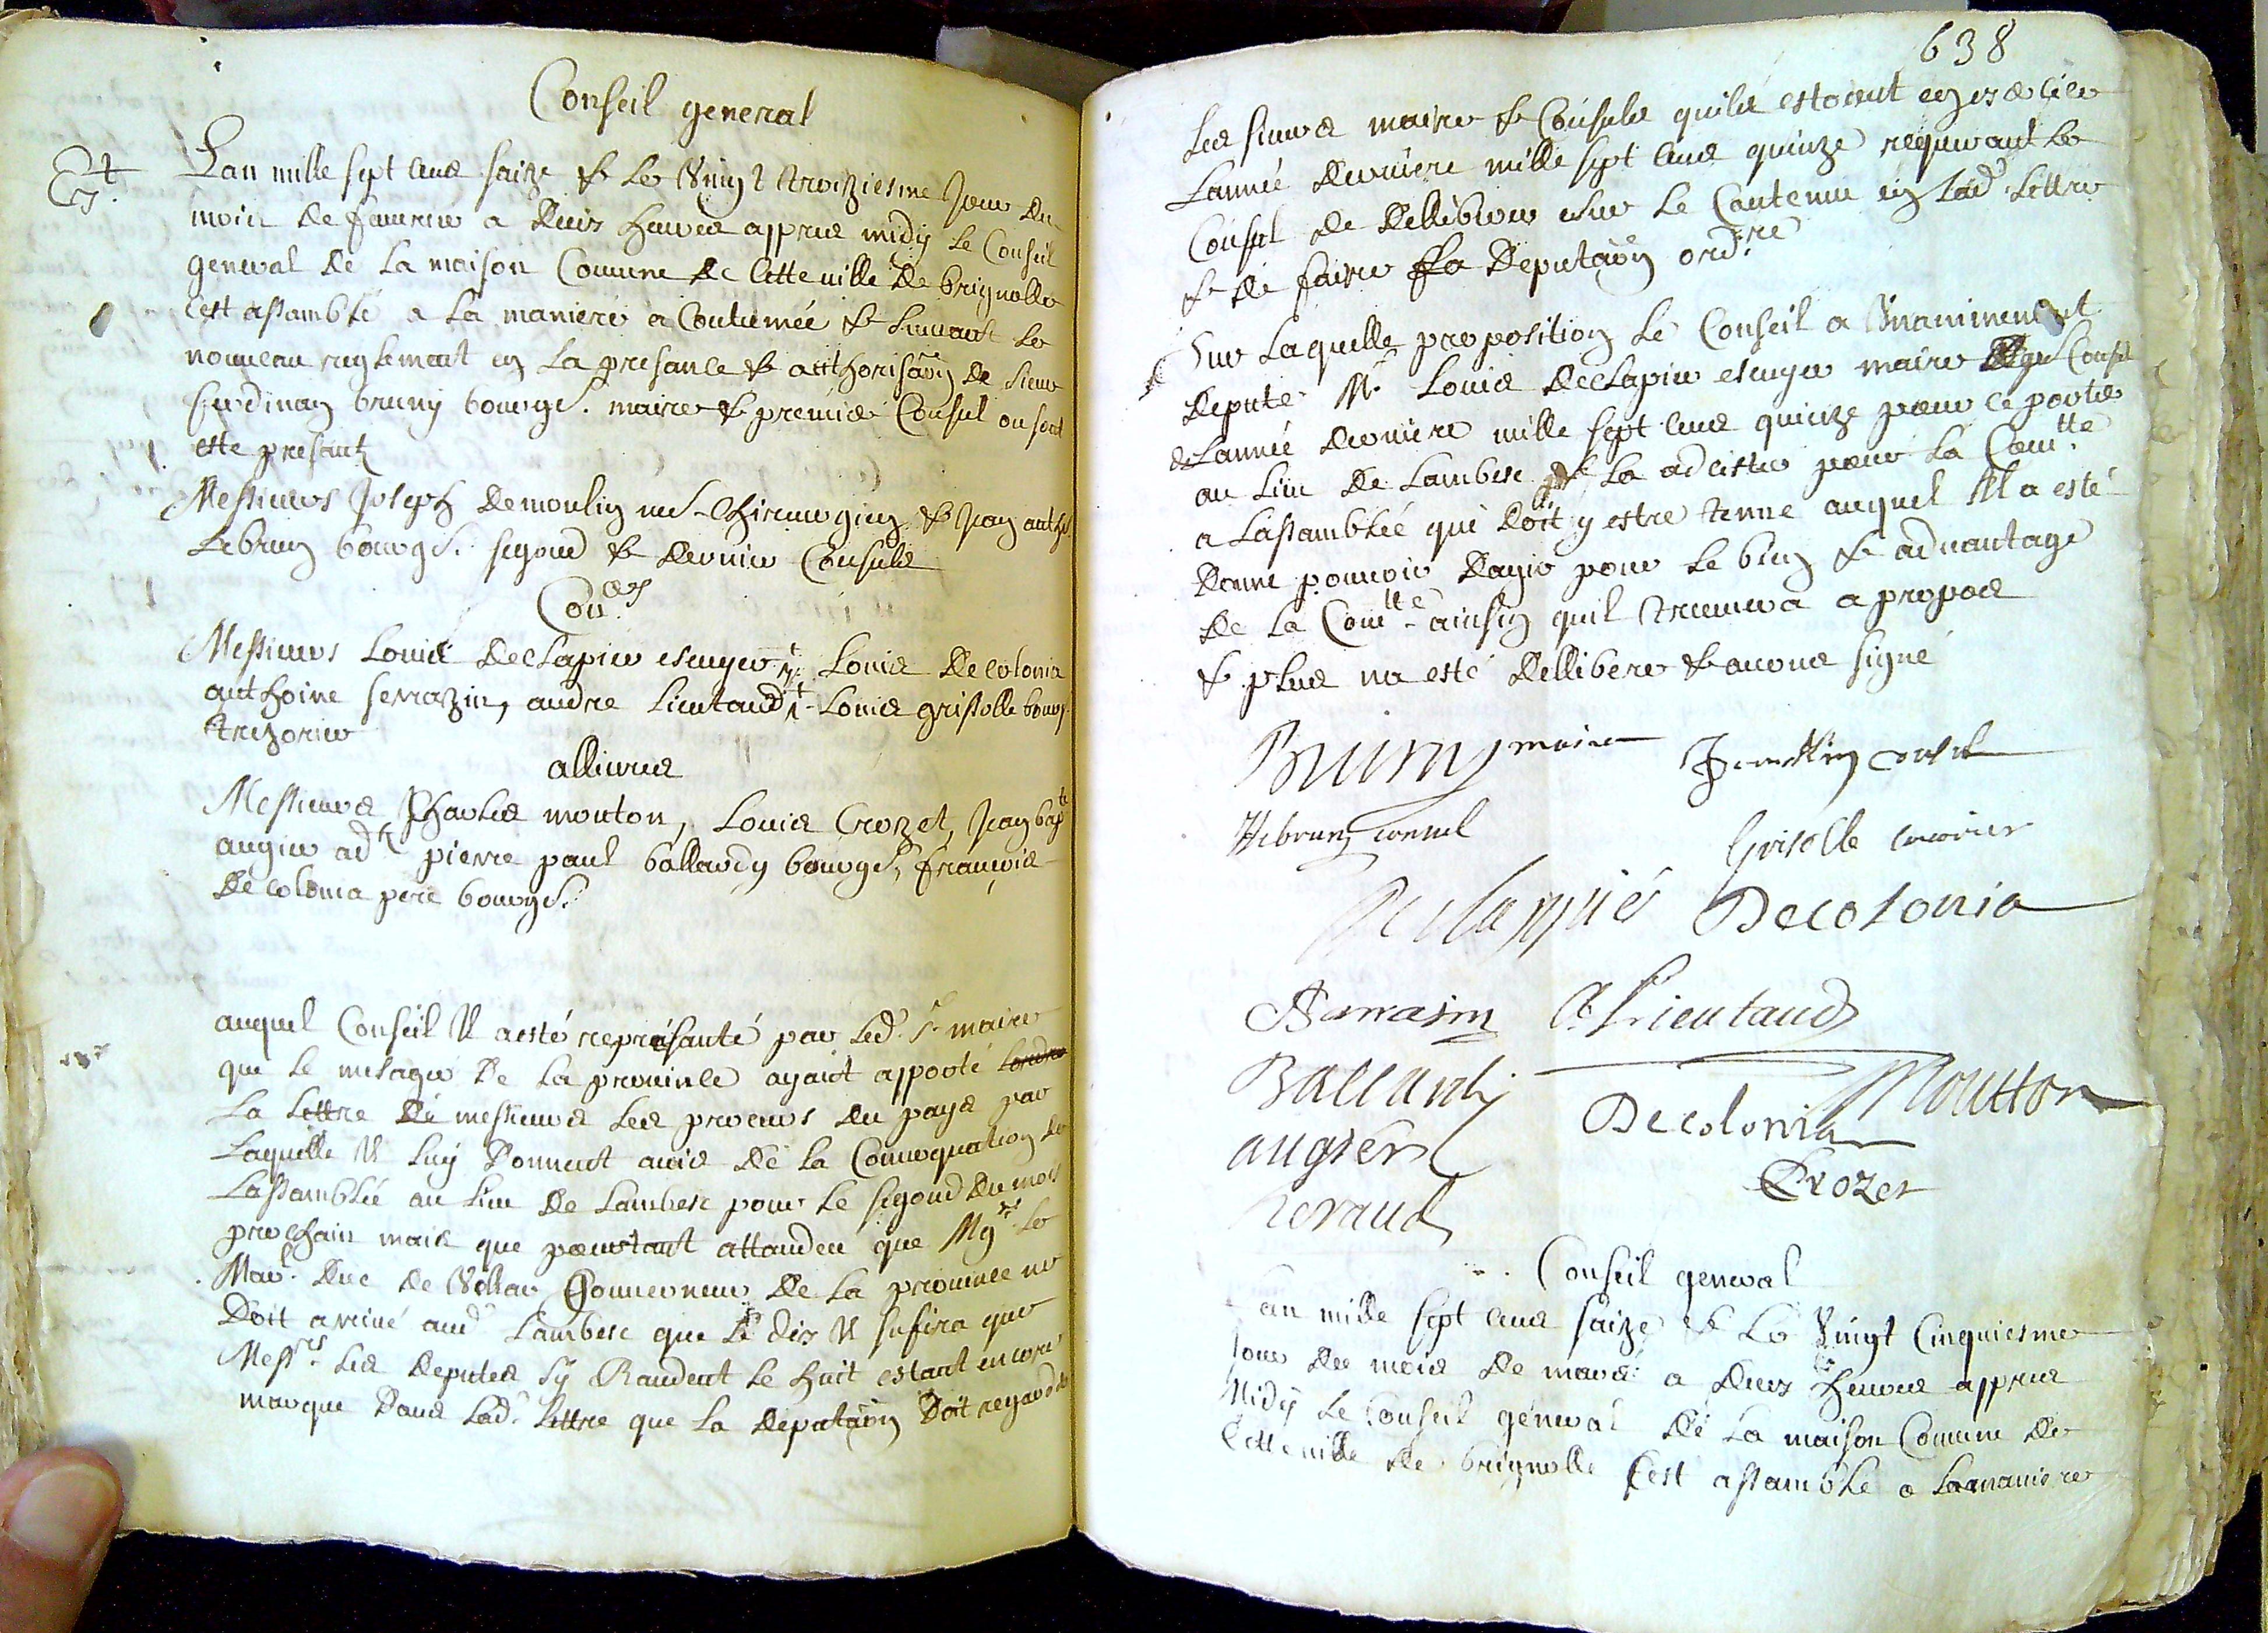 Conseil general
Lan mille sept cens saize & le vingt troiziesme Jour du
mois de feurier a deux heures appres midy le Conseil
general de la maison Comune de Cette ville de brignolle
cest assamblé a la maniere a Coutumée & suiuant le
nouveau reglement en la presance & authorisaõn de sieur
ferdinan bruny bourgs. maire & premier Consul ou sont
este presants
Messieurs Joseph Demoulin me Chirurgien & Jean anthe
Lebrun bourgs. segond & dernier Consuls
Coners
Messieurs Louis Declapier escuyer, Louis Decolonia
anthoine serrazin, andre Lieutaud, Louis grisolle bourgs.
trezorier
alliurés
Messieurs Charles mouton, Louis Crozet, Jean bapte
augier adt pierre paul ballardy bourgs, françois
Decolonia pere bourgs.
auquel Conseil Il a esté représanté par led. sr maire
que le mesager de la prouince ayant apporté
la lettre de messieurs les procurs du pays par
laquelle Il luy donnent auis de la Conuoquation de
Lassamblée au lieu de Lambesc pour le segond du mois
prochain mais que pourtant attandeu que Mgr le
Maral. Duc de Villar Gouuerneur de la prouince ne
doit arriué aud. Lambesc que le dix Il sufira que
Messrs. les deputes sy Randent le huit estant encore
marque dans lad. lettre que la deputaõn doit regarder
638
les sieurs maire & Consuls quils estoient en exercice
Lannée derniere mille sept cens quinze requerant le
Conseil de delliberer sur le Contenu en lad. lettre
& de faire la deputaõn ordre.
Sur laquelle proposition le Conseil a vnanimement
deputé Mr Louis Declapier escuyer maire Consul
de Lannée derniere mille sept cens quinze pour ce porter
au lieu de Lambesc la adcister pour la Comtte.
a Lassamblée qui doit y estre tenue auquel Il a esté
donne pouuoir dagir pour le bien & aduantage
de la Comtte ainsin quil treuuera a propos
& plus na esté delliberé & auons signé
Bruny maire
Demollin consul
Hebrun consul
Grisolle tresorier
Declapiés Decolonia
Sarrasin A Lieutaud
Ballardy
Decolonia Moutton
augier
Crozet
heraud
Conseil general
Lan mille sept cens saize & le vingt Cinquiesme
Jour du mois de mars a deux heures appres
Midy le Conseil general de la maison Comune de
Cette ville de brignolle Cest assamblé a la maniere